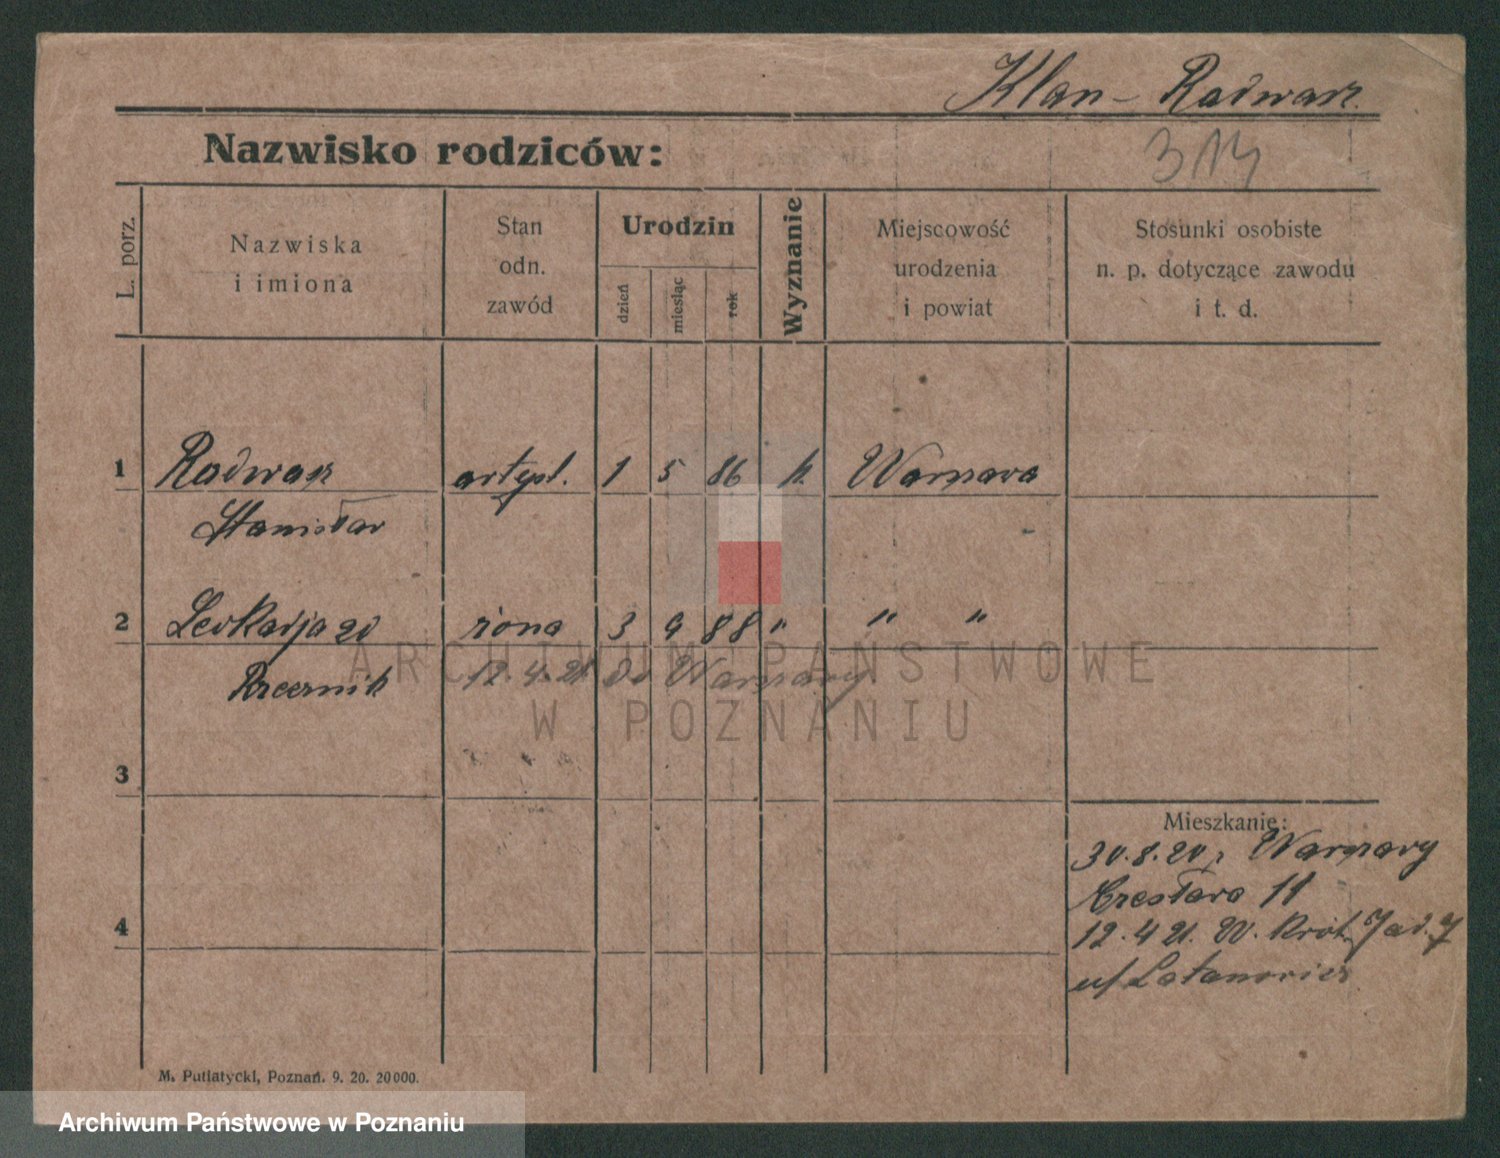 Klan - Radwan
314
Nazwisko rodziców:
L. porz.
Nazwiska
i imiona
Stan
odn.
zawód
Urodzin
dzień
miesiąc
rok
Wyznanie
Miejscowość
urodzenia
i powiat
Stosunki osobiste
n. p. dotyczące zawodu
i t. d.
1 Radwan 1 5 86 k. Warszawa
Stanisław
2 Leokadja zd żona 3 9 88 " " "
12.4.21 do Warszawy
ARCHIWUM PAŃSTWOWE
W POZNANIU
3
Mieszkanie:
30.8.20 z Warszawy
11
4
12.4 21. W.
M. Putiatycki, Poznań. 9. 20. 20000.
Archiwum Państwowe w Poznaniu